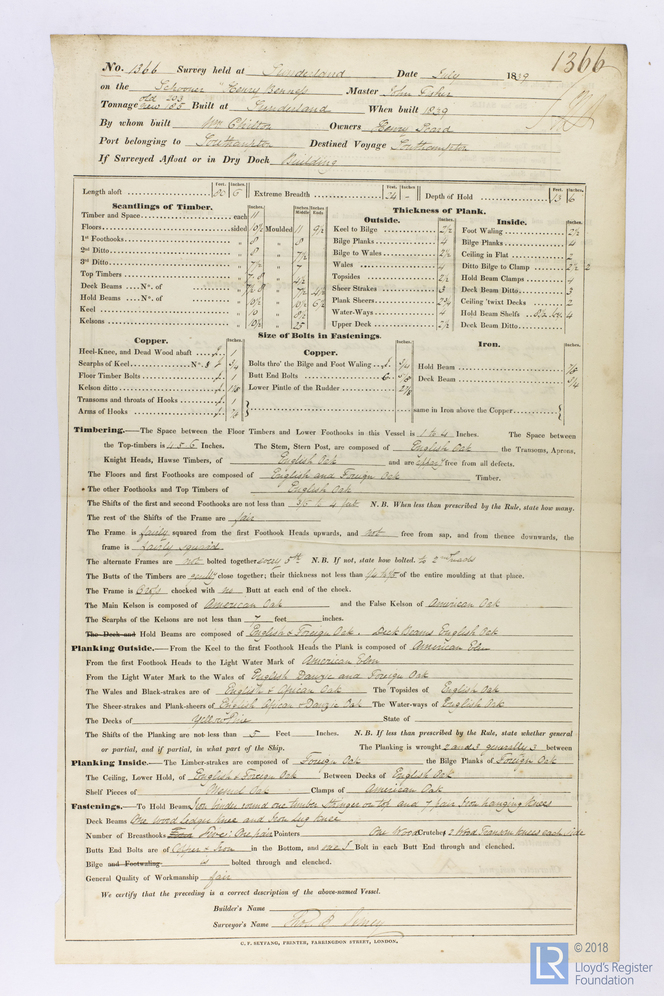 1366
No. 1366 Survey held at Sunderland Date July 1839
on the Schooner "Henry Master John
Tonnage old 203 new 185 Built at Sunderland When built 1839
By whom built Wm Chilton Owners Henry
Port belonging to Southampton Destined Voyage Southampton
If Surveyed Afloat or in Dry Dock Building
Feet. Inches. Feet. Inches. Feet. Inches.
Length aloft Extreme Breadth Depth of Hold 13 6
Scantlings of Timber. Inches. Inches Middle Inches Ends
Thickness of Plank.
Outside. Inches. Inside. Inches.
Timber and Space each 11
Floors sided 10½ Moulded 11 9½
1st Foothooks " 8 " 8
2nd Ditto " 8 " 7½
3rd Ditto " 7½ " 7
Top Timbers " "
Deck Beams No. of " "
Hold Beams No. of " "
Keel " "
Kelsons " 10½ " 25
Keel to Bilge 2½
Bilge Planks 4
Bilge to Wales 2½
Wales 4
Topsides 2½
Sheer Strakes 3
Plank Sheers 2¾
Water-Ways 4
Upper Deck 2½
Foot Waling 2½
Bilge Planks 4
Ceiling in Flat 2
Ditto Bilge to Clamp 2½ 2
Hold Beam Clamps 4
Deck Beam Ditto 3
Ceiling 'twixt Decks 2
Hold Beam Shelfs 4
Deck Beam Ditto
Size of Bolts in Fastenings.
Copper. Inches. Copper. Inches. Iron. Inches.
Heel-Knee, and Dead Wood abaft 1
Scarphs of Keel No. ¾
Floor Timber Bolts 1
Kelson ditto
Transoms and throats of Hooks 1
Arms of Hooks ⅞
Bolts thro' the Bilge and Foot Waling ¾
Butt End Bolts
Lower Pintle of the Rudder
Hold Beam
Deck Beam
same in Iron above the Copper
Timbering.—The Space between the Floor Timbers and Lower Foothooks in this Vessel is 1 to 4 Inches. The Space between
the Top-timbers is 4 & 6 Inches. The Stem, Stern Post, are composed of English Oak the Transoms, Aprons,
Knight Heads, Hawse Timbers, of English Oak and are free from all defects.
The Floors and first Foothooks are composed of English and Foreign Oak Timber.
The other Foothooks and Top Timbers of English Oak
The Shifts of the first and second Foothooks are not less than 3½ to 4 feet N.B. When less than prescribed by the Rule, state how many.
The rest of the Shifts of the Frame are fair
The Frame is fairly squared from the first Foothook Heads upwards, and not free from sap, and from thence downwards, the
frame is fairly squared
The alternate Frames are not bolted together every 5th N.B. If not, state how bolted. to 2nd
The Butts of the Timbers are close together; their thickness not less than of the entire moulding at that place.
The Frame is chocked with no Butt at each end of the chock.
The Main Kelson is composed of American Oak and the False Kelson of American Oak
The Scarphs of the Kelsons are not less than 7 feet inches.
The Deck and Hold Beams are composed of English & Foreign Oak. Deck Beams English Oak
Planking Outside.—From the Keel to the first Foothook Heads the Plank is composed of American Elm
From the first Foothook Heads to the Light Water Mark of American Elm
From the Light Water Mark to the Wales of English Danzic and Foreign Oak
The Wales and Black-strakes are of English & African Oak The Topsides of English Oak
The Sheer-strakes and Plank-sheers of English African & Danzic Oak The Water-ways of English Oak
The Decks of Yellow Pine State of
The Shifts of the Planking are not less than 5 Feet Inches. N.B. If less than prescribed by the Rule, state whether general
or partial, and if partial, in what part of the Ship. The Planking is wrought 2 and 3 generally 3 between
Planking Inside.—The Limber-strakes are composed of Foreign Oak the Bilge Planks of Foreign Oak
The Ceiling, Lower Hold, of English & Foreign Oak Between Decks of English Oak
Shelf Pieces of Memel Oak Clamps of American Oak
Fastenings.—To Hold Beams Iron binder round one timber Stringer on top and 7 pair Iron hanging knees
Deck Beams One wood Ledger knee and Iron Lug knee
Number of Breasthooks Five: One pair Pointers One Wood Crutches 2 Wood Transom knees each side
Butts End Bolts are of Copper & Iron in the Bottom, and one Bolt in each Butt End through and clenched.
Bilge and Footwaling is bolted through and clenched.
General Quality of Workmanship fair
We certify that the preceding is a correct description of the above-named Vessel.
Builder's Name
Surveyor's Name Thos B
C. F. SEYFANG, PRINTER, FARRINGDON STREET, LONDON.
LR
© 2018
Lloyd's Register
Foundation